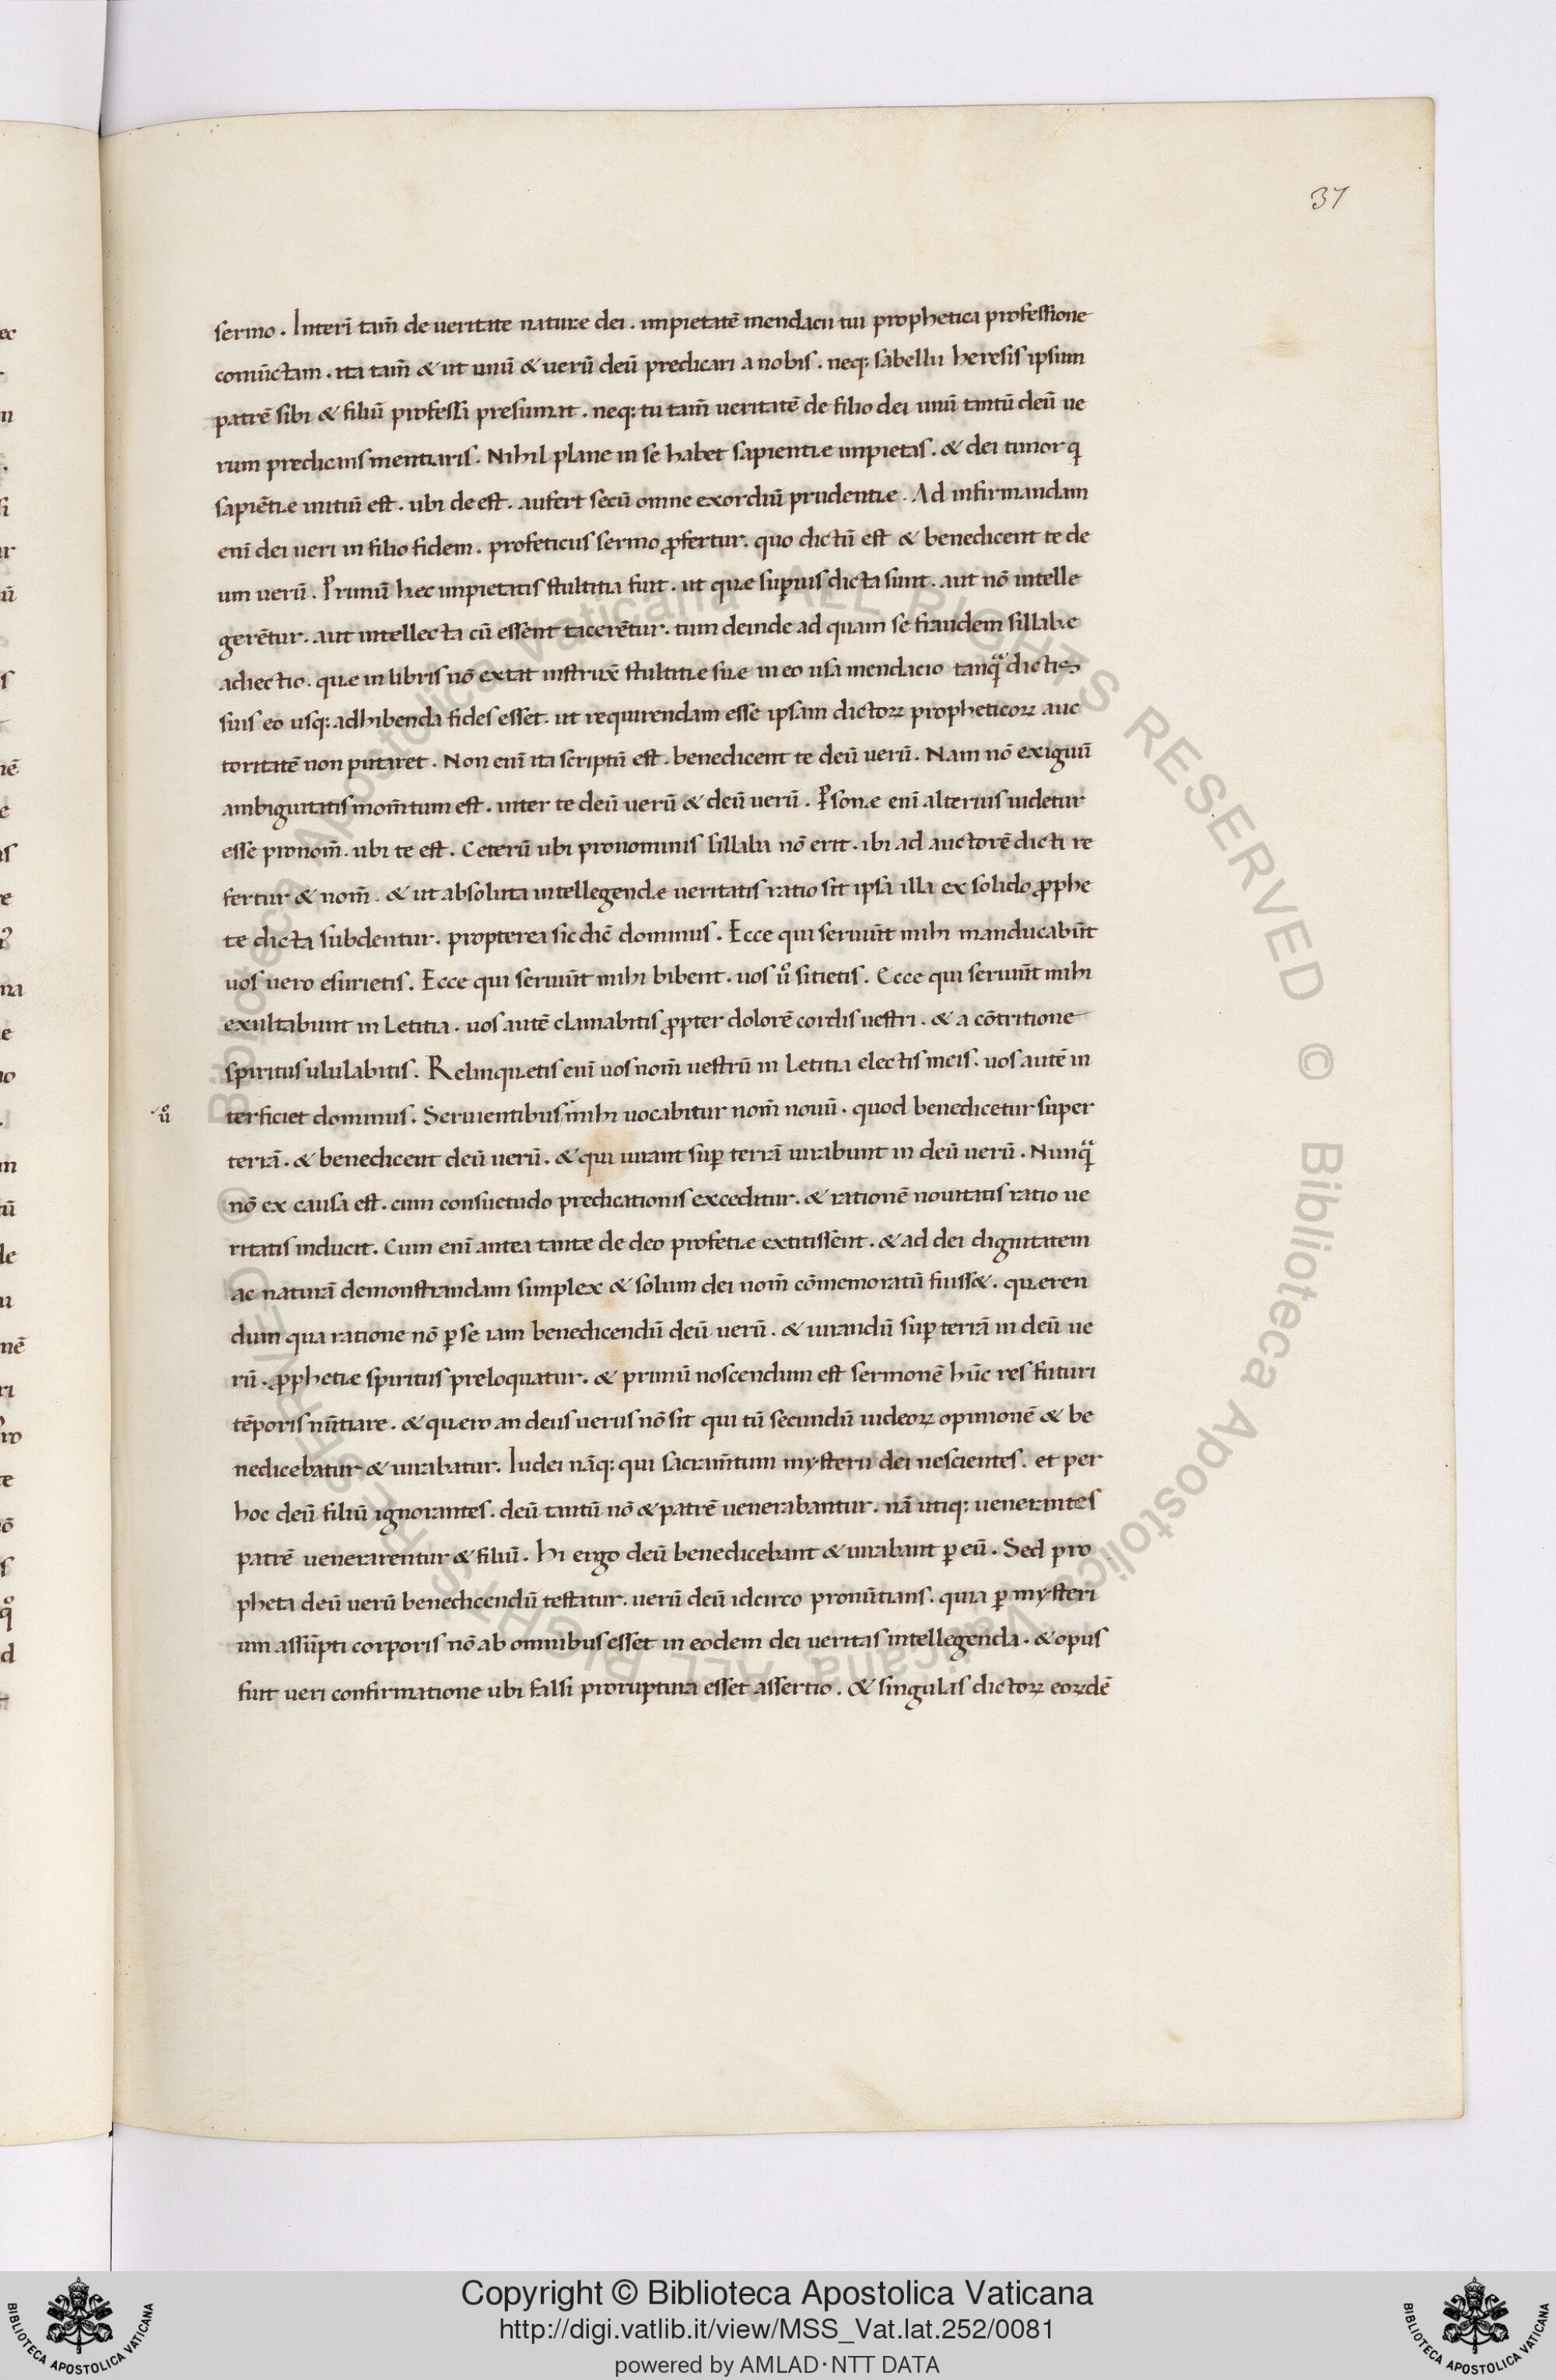 37
sermo. Interī tam̄ de ueritate naturę dei. impietatē mendacii tui prophetica professione
conuīctam. ita tam̄ & ut unū & uerū deū predicari a nobis. neq; sabellii heresis ipsum
patrē sibi & filiū professa presumat. neq; tu tam̄ ueritatē de filio dei unū tantū deū ue
rum predicans mentiaris. Nihil plane in se habet sapientię impietas. & dei timor q
sapiētię initiū est. ubi de est. aufert secū omne exordiū prudentię. Ad infirmandam
enī dei ueri in filio fidem. profeticus sermo ꝓfertur. quo dictū est & benedicent te de
um uerū. Primū hęc impietatis stultitia fuit. ut quę suꝑius dicta sunt. aut nō intelle
gerētur. aut intellecta cū essent tacerētur. tum deinde ad quam se fraudem sillabę
adiectio. quę in libris nō extat instruxē stultitię suę in eo usa mendacio tanq̄ dictis
suis eo usq; adhibenda fides esset. ut requirendam esse ipsam dictoꝝ propheticoꝝ auc
toritatē non putaret. Non enī ita scriptū est. benedicent te deū uerū. Nam nō exiguū
ambiguitatis mom̄tum est. inter te deū uerū & deū uerū. Ꝑsonę enī alterius uidetur
esse pronom̄. ubi te est. Ceterū ubi pronominis sillaba nō erit. ibi ad auctorē dicti re
fertur & nom̄. & ut absoluta intellegendę ueritatis ratio sit ipsa illa ex solido ꝓphe
tę dicta subdentur. propterea sic dic̄ dominus. Ecce qui seruiūt mihi manducabūt
uos uero esurietis. Ecce qui seruiūt mihi bibent. uos ū sitietis. Ecce qui seruiūt mihi
exultabunt in lętitia. uos autē clamabitis ꝓpter dolorē cordis uestri. & a cōtritione
spiritus ululabitis. Relinquetis enī uos nom̄ uestrū in lętitia electis meis. uos autē in
ū
terficiet dominus. Seruientibus mihi uocabitur nom̄ nouū. quod benedicetur super
terrā. & benedicent deū uerū. & qui iurant suꝑ terrā iurabunt in deū uerū. Nunq̄
nō ex causa est. cum consuetudo predicationis exceditur. & rationē nouitatis ratio ue
ritatis inducit. Cum enī antea tantę de deo profetię extitissent. & ad dei dignitatem
ac naturā demonstrandam simplex & solum dei nom̄ cōmemoratū fuiss&. queren
dum qua ratione nō ꝑ se iam benedicendū deū uerū. & iurandū suꝑ terrā in deū ue
rū. ꝓphetię spiritus preloquatur. & primū noscendum est sermonē hūc res futuri
tēporis nūtiare. & quęro an deus uerus nō sit qui tū secundū iudeoꝝ opinionē & be
nedicebatur & iurabatur. Iudei nāq; qui sacram̄tum mysterii dei nescientes. et per
hoc deū filiū ignorantes. deū tantū nō & patrē uenerabantur. nā utiq; uenerantes
patrē uenerarentur & filiū. Hi ergo deū benedicebant & iurabant ꝑ eū. Sed pro
pheta deū uerū benedicendū testatur. uerū deū idcirco pronūtians. quia ꝑ mysteri
um assūpti corporis nō ab omnibus esset in eodem dei ueritas intellegenda. & opus
fuit ueri confirmatione ubi falsi proruptura esset assertio. & singulas dictoꝝ eoꝝdē
Copyright © Biblioteca Apostolica Vaticana
http://digi.vatlib.it/view/MSS_Vat.lat.252/0081
powered by AMLAD·NTT DATA